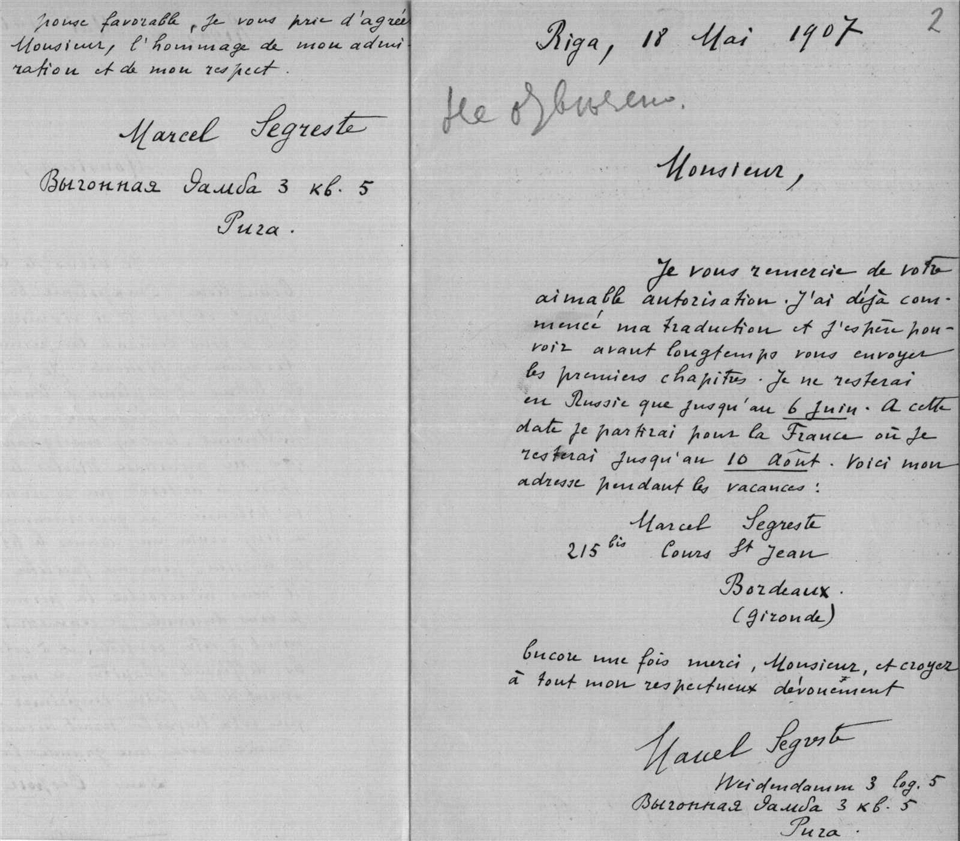 ponse favorable, je vous prie d'agrée
Monsieur, l'hommage de mon admi-
ration et de mon respect.
Marcel Segreste
Выгонная Дамба 3 кв. 5
Рига.
2
Riga, 18 Mai 1907
Не
Monsieur,
Je vous remercie de votre
aimable autorisation. J'ai déjà com-
mencé ma traduction et j'espère pou-
voir avant longtemps vous envoyer
les premiers chapitres. Je ne resterai
en Russie que jusqu'au 6 Juin. A cette
date je partirai pour la France où je
resterai jusqu'au 10 Août. Voici mon
adresse pendant les vacances :
Marcel Segreste
215 bis Cours St Jean
Bordeaux.
(Gironde)
Encore une fois merci, Monsieur, et croyez
à tout mon respectueux dévouement
Marcel Segreste
Weidendamm 3 log. 5
Выгонная Дамба 3 кв. 5
Рига.